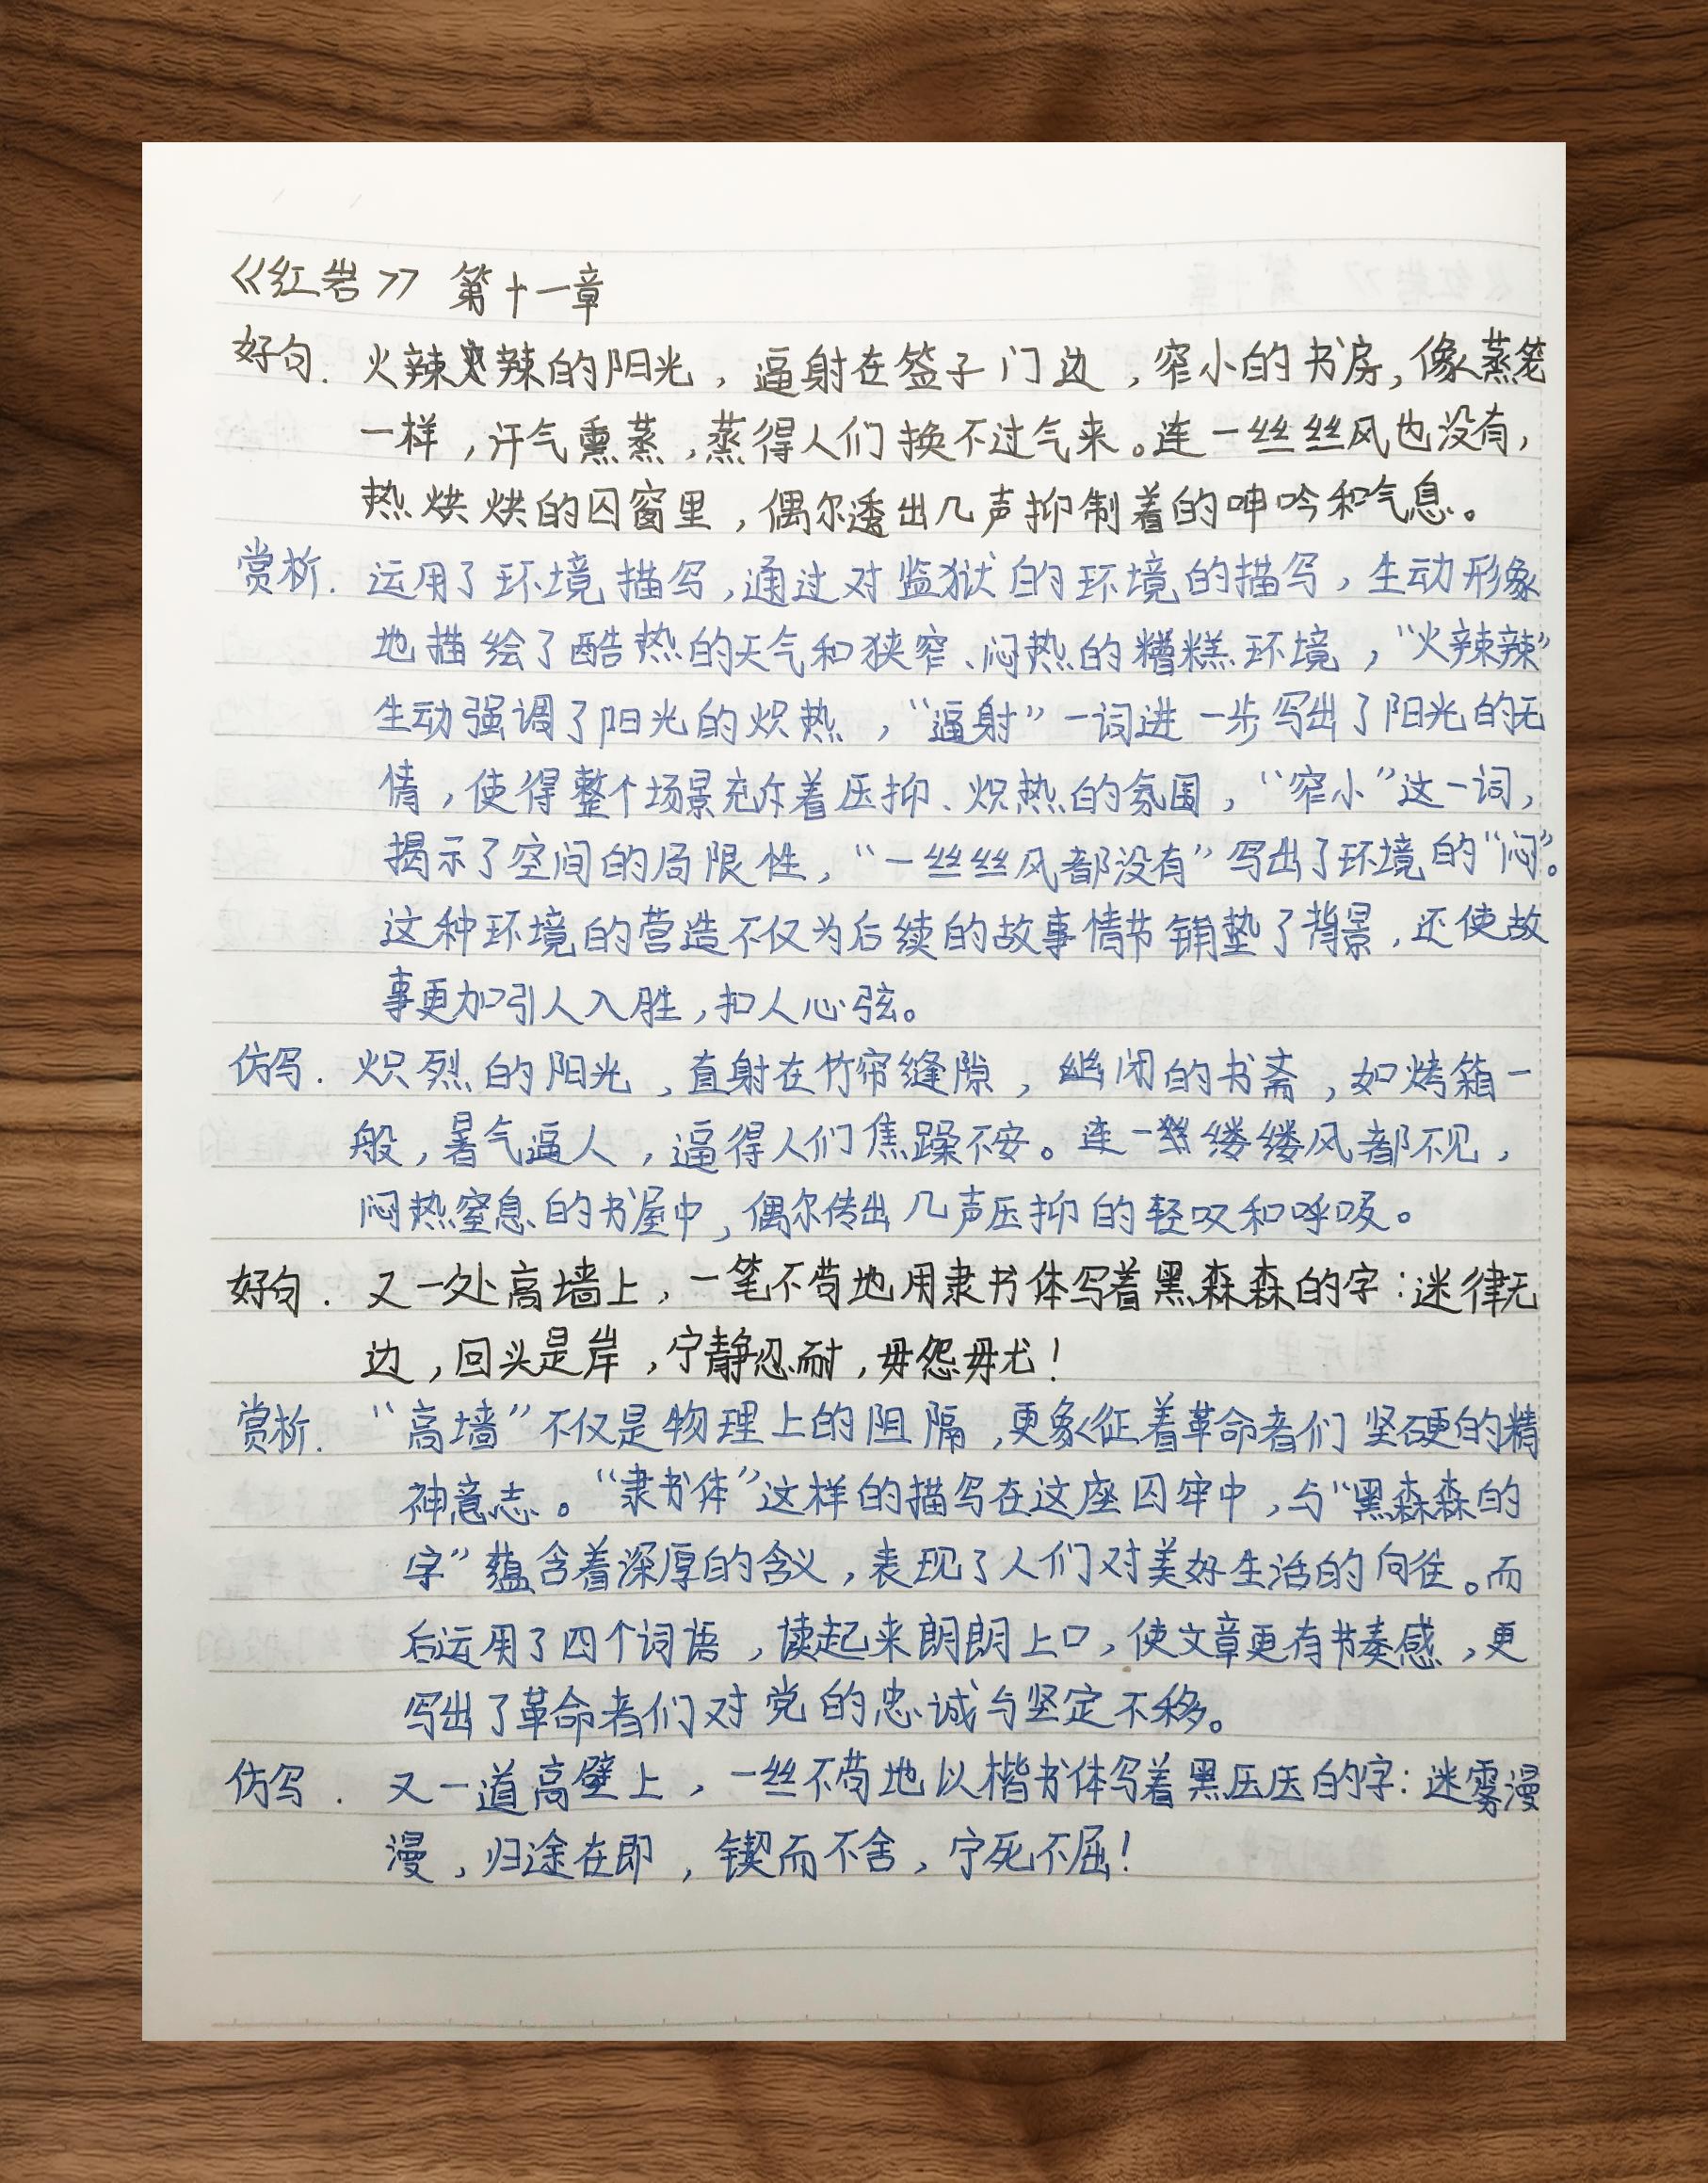 《红岩》 第十一章
好句. 火辣辣的阳光，逼射在签子门边，窄小的书房，像蒸笼
一样，汗气熏蒸，蒸得人们换不过气来。连一丝丝风也没有，
热烘烘的囚窗里，偶尔透出几声抑制着的呻吟和气息。
赏析. 运用了环境描写，通过对监狱的环境的描写，生动形象
地描绘了酷热的天气和狭窄、闷热的糟糕环境，“火辣辣”
生动强调了阳光的炽热，“逼射”一词进一步写出了阳光的无
情，使得整个场景充斥着压抑、炽热的氛围，“窄小”这一词，
揭示了空间的局限性，“一丝丝风都没有”写出了环境的“闷”。
这种环境的营造不仅为后续的故事情节铺垫了背景，还使故
事更加引人入胜，扣人心弦。
仿写. 炽烈的阳光，直射在竹帘缝隙，幽闭的书斋，如烤箱一
般，暑气逼人，逼得人们焦躁不安。连一缕缕风都不见，
闷热窒息的书屋中，偶尔传出几声压抑的轻叹和呼吸。
好句. 又一处高墙上，一笔不苟地用隶书体写着黑森森的字：迷律无
边，回头是岸，宁静忍耐，毋怨毋尤！
赏析. “高墙”不仅是物理上的阻隔，更象征着革命者们坚硬的精
神意志。“隶书体”这样的描写在这座囚牢中，与“黑森森的
字”蕴含着深厚的含义，表现了人们对美好生活的向往。而
后运用了四个词语，读起来朗朗上口，使文章更有节奏感，更
写出了革命者们对党的忠诚与坚定不移。
仿写. 又一道高壁上，一丝不苟地以楷书体写着黑压压的字：迷雾漫
漫，归途在即，锲而不舍，宁死不屈！